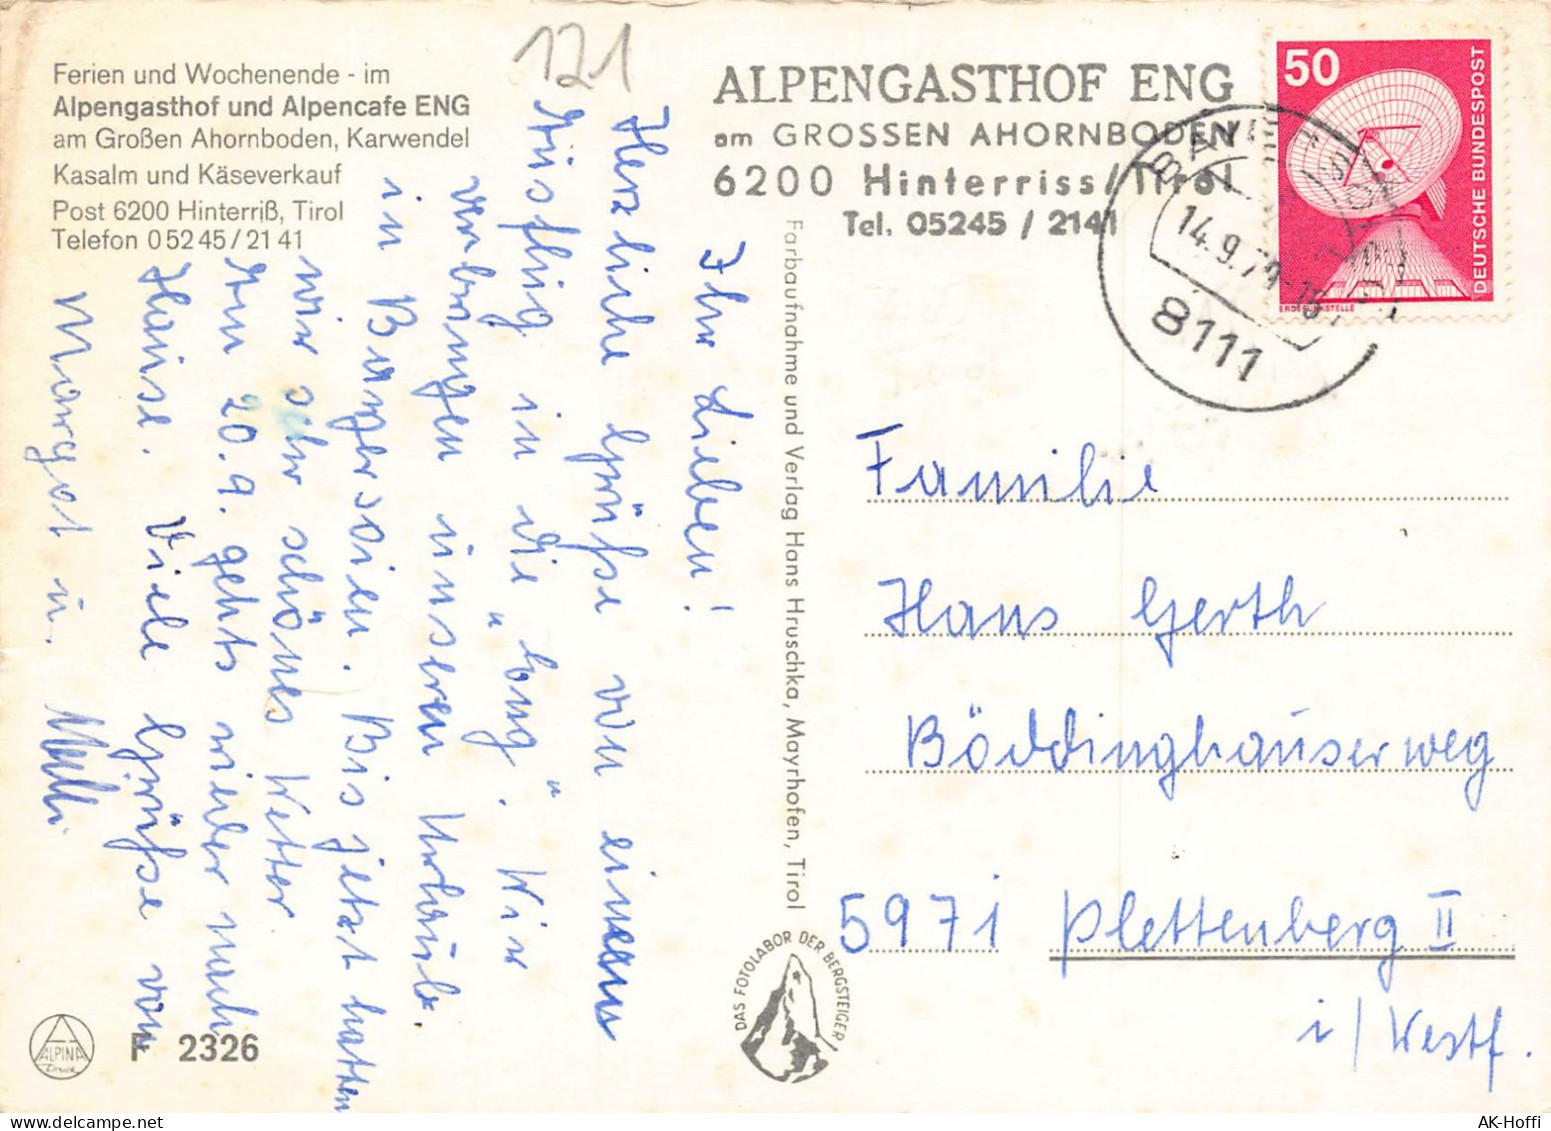 Ferien und Wochenende - im
Alpengasthof und Alpencafe ENG
am Großen Ahornboden, Karwendel
Kasalm und Käseverkauf
Post 6200 Hinterriß, Tirol
Telefon 0 52 45 / 21 41
121
ALPENGASTHOF ENG
am GROSSEN AHORNBODEN
6200 Hinterriss/Tirol
Tel. 05245 / 2141
50
DEUTSCHE BUNDESPOST
14.9.79
8111
Ihr Lieben!
Herzliche Grüße von einem
Ausflug in die "Eng". Wir
verbringen unseren Urlaub
in Bayersoien. Bis jetzt hatten
wir sehr schönes Wetter
Am 20.9. gehts wieder nach
Hause. Viele Grüße von
Margot u. Willi
Farbaufnahme und Verlag Hans Hruschka, Mayrhofen, Tirol
DAS FOTOLABOR DER BERGSTEIGER
Familie
Hans Gerth
Böddinghauserweg
5971 Plettenberg II
i/Westf.
ALPINA
Druck
F 2326
AK-Hoffi